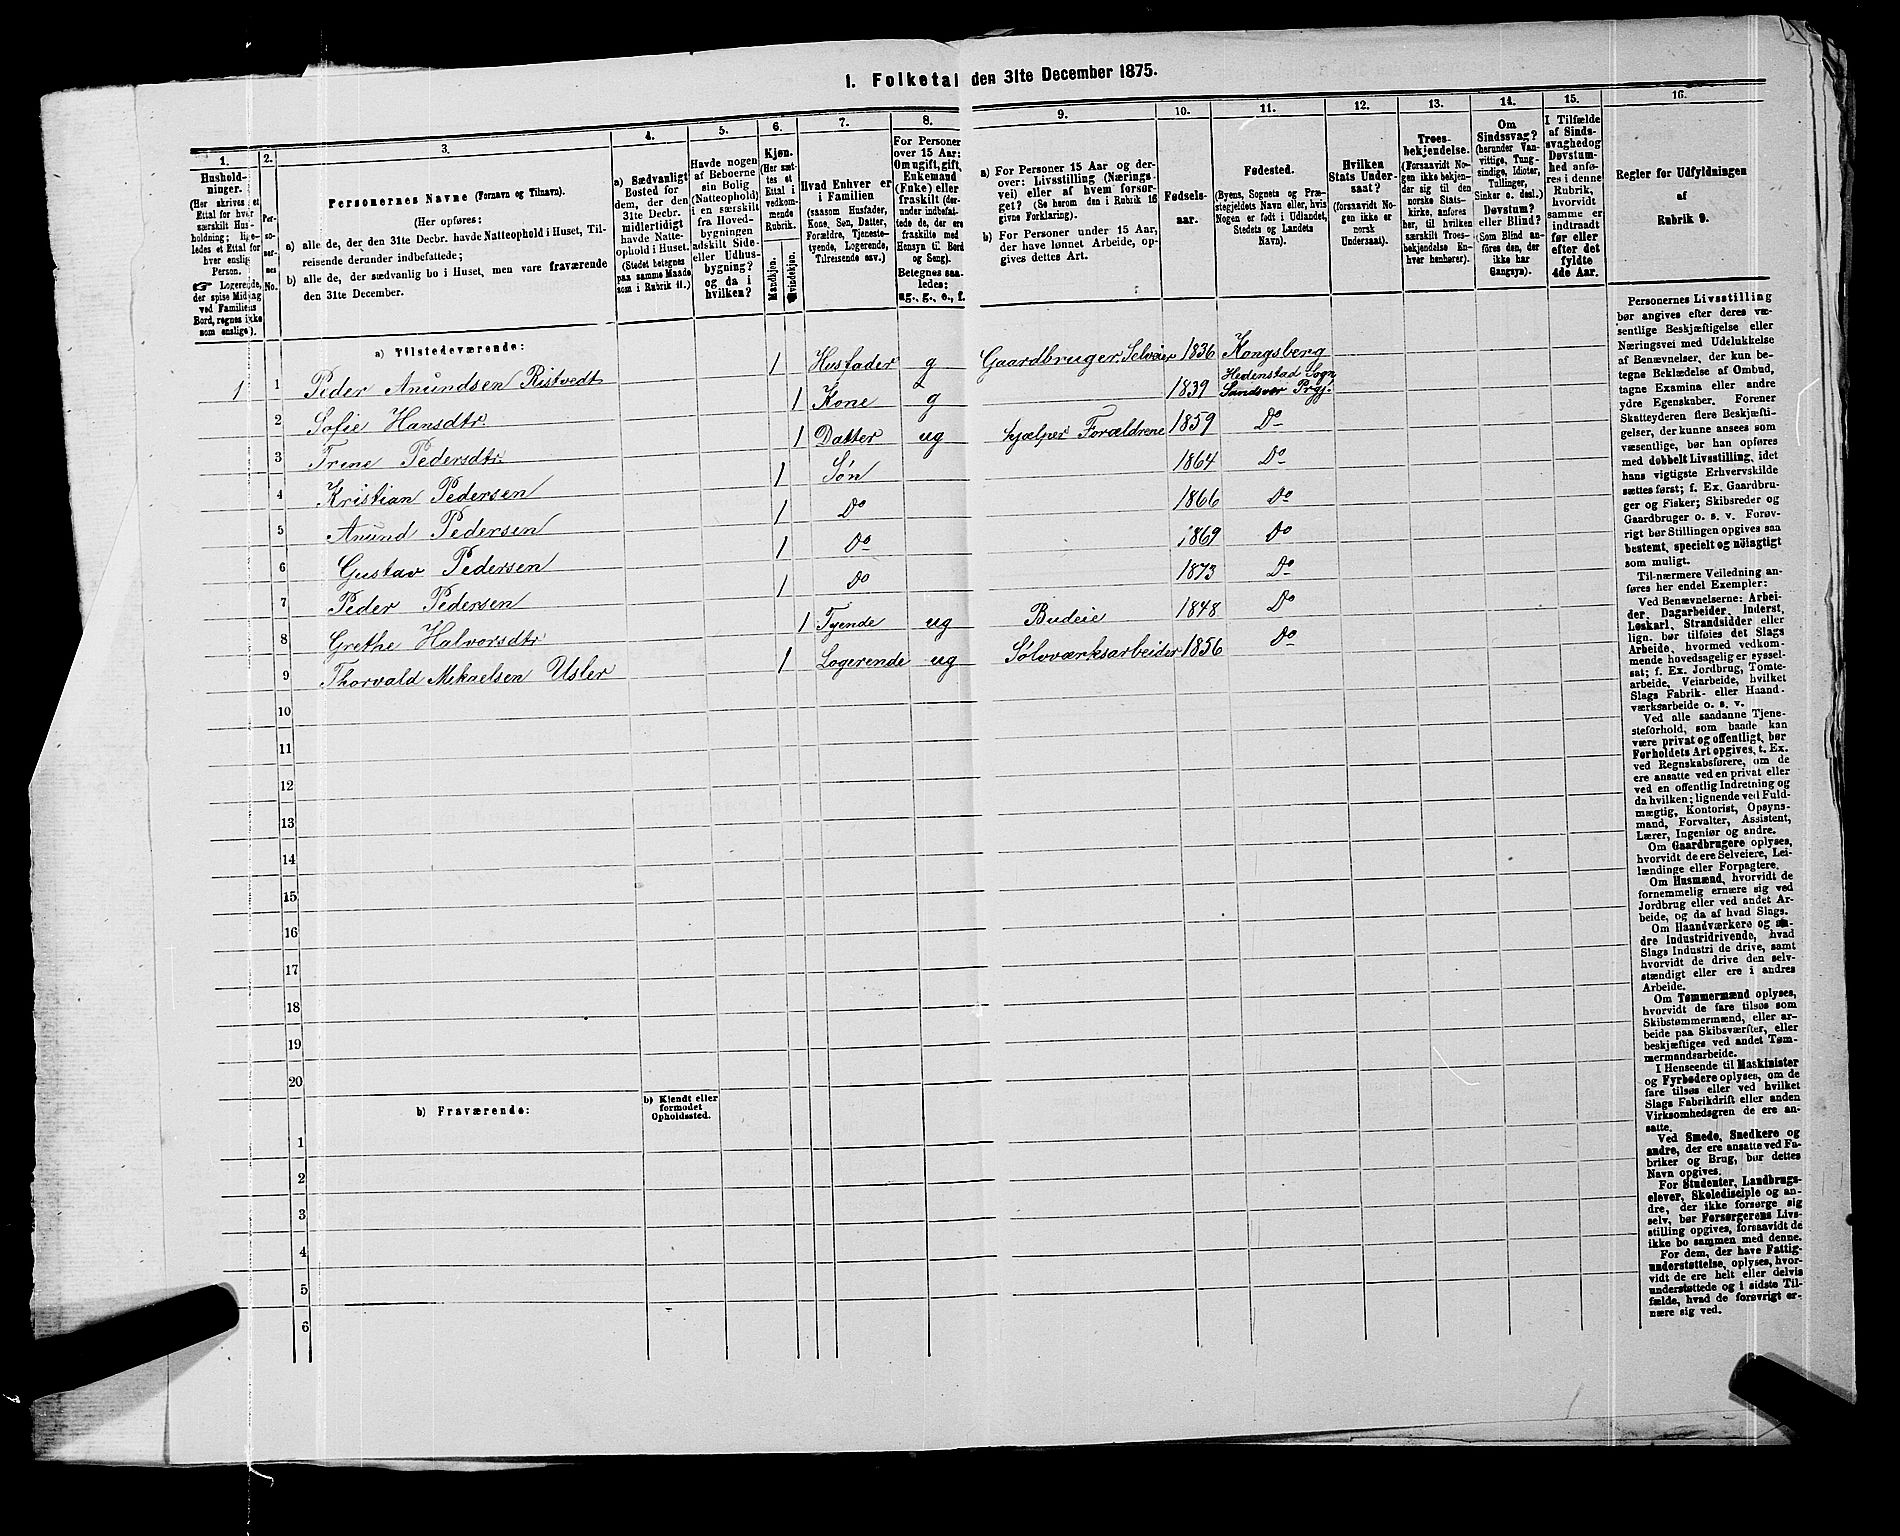 1. Folketal den 31te December 1875.
1.
Hushold-
ninger.
(Her skrives et
Ettal for hver
særskilt Hus-
holdning; lige-
ledes et Ettal for
hver enslig
Person.
☞ Logerende,
der spise Middag
ved Familiens
Bord, regnes ikke
som enslige).
2.
Per-
so-
ner-
nes
No.
3.
Personernes Navne (Fornavn og Tilnavn).
(Her opføres:
a) alle de, der den 31te Decbr. havde Natteophold i Huset, Til-
reisende derunder indbefattede;
b) alle de, der sædvanlig bo i Huset, men vare fraværende
den 31te December.
4.
a) Sædvanligt
Bosted for
dem, der den
31te Decbr.
midlertidigt
havde Natte-
ophold i Huset.
(Stedet betegnes
paa samme Maade
som i Rubrik 11.)
5.
Havde nogen
af Beboerne
sin Bolig
(Natteophold)
i en særskilt
fra Hoved-
bygningen
adskilt Side-
eller Udhus-
bygning?
og da i
hvilken?
6.
Kjøn.
(Her sæt-
tes et
Ettal i
vedkom-
mende
Rubrik.
Mandkjøn.
Kvindekjøn.
7.
Hvad Enhver er
i Familien
(saasom Husfader,
Kone, Søn, Datter,
Forældre, Tjeneste-
tyende, Logerende,
Tilreisende osv.)
8.
For Personer
over 15 Aar:
Om ugift, gift,
Enkemand
(Enke) eller
fraskilt (der-
under indbefat-
tede de, der ere
fraskilte med
Hensyn til Bord
og Seng).
Betegnes saa-
ledes:
ug., g., e., f.
9.
a) For Personer 15 Aar og der-
over: Livsstilling (Nærings-
vei) eller af hvem forsør-
get? (Se herom den i Rubrik 16
givne Forklaring).
b) For Personer under 15 Aar,
der have lønnet Arbeide, op-
gives dettes Art.
10.
Fødsels-
aar.
11.
Fødested.
(Byens, Sognets og Præ-
stegjeldets Navn eller, hvis
Nogen er født i Udlandet,
Stedets og Landets
Navn).
12.
Hvilken
Stats Under-
saat?
(forsaavidt No-
gen ikke er
norsk
Undersaat).
13.
Troes-
bekjendelse.
(Forsaavidt No-
gen ikke bekjen-
der sig til den
norske Stats-
kirke, anføres
her, til hvilken
særskilt Troes-
bekjendelse En-
hver henhører).
14.
Om
Sindssvag?
(herunder Van-
vittige, Tung-
sindige, Idioter,
Tullinger,
Sinker o. desl.)
Døvstum?
eller Blind?
(Som Blind an-
føres den, der
ikke har
Gangsyn).
15.
I Tilfælde
af Sinds-
svaghed og
Døvstum-
hed anfø-
res i denne
Rubrik,
hvorvidt
samme er
indtraadt
før eller
efter det
fyldte
4de Aar.
16.
Regler for Udfyldningen
af
Rubrik 9.
a) Tilstedeværende:
1 1 Peder Anundsen Ristvedt 1 Husfader g Gaardbruger, Selveier 1836 Kongsberg
2 Sofie Hansdtr. 1 Kone g 1839 Hedenstad Sogn
Sandsver Prgj.
3 Trine Pedersdtr. 1 Datter ug hjælper Forældrene 1859 Do
4 Kristian Pedersen 1 Søn 1864 Do
5 Anund Pedersen 1 Do 1866 Do
6 Gustav Pedersen 1 Do 1869 Do
7 Peder Pedersen 1 Do 1873 Do
8 Grethe Halvorsdtr 1 Tyende ug Budeie 1848 Do
9 Thorvald Mikaelsen Usler 1 Logerende ug Sølvværksarbeider 1856 Do
10
11
12
13
14
15
16
17
18
19
20
b) Fraværende:
b) Kjendt eller
formodet
Opholdssted.
1
2
3
4
5
6
Personernes Livsstilling
bør angives efter deres væ-
sentlige Beskjæftigelse eller
Næringsvei med Udelukkelse
af Benævnelser, der kun be-
tegne Beklædelse af Ombud,
tagne Examina eller andre
ydre Egenskaber. Forener
Skatteyderen flere Beskjæfti-
gelser, der kunne ansees som
væsentlige, bør han opføres
med dobbelt Livsstilling, idet
hans vigtigste Erhvervskilde
sættes først; f. Ex. Gaardbru-
ger og Fisker; Skibsreder og
Gaardbruger o. s. v. Forøv-
rigt bør Stillingen opgives saa
bestemt, specielt og nöiagtigt
som muligt.
Til nærmere Veiledning an-
føres her endel Exempler:
Ved Benævnelserne: Arbei-
der, Dagarbeider, Inderst,
Løskarl, Strandsidder eller
lign. bør tilføies det Slags
Arbeide, hvormed vedkom-
mende hovedsagelig er syssel-
sat; f. Ex. Jordbrug, Tomte-
arbeide, Veiarbeide, hvilket
Slags Fabrik- eller Haand-
værksarbeide o. s. v.
Ved alle saadanne Tjene-
steforhold, som baade kan
være privat og offentligt, bør
Forholdets Art opgives, t. Ex.
ved Regnskabsførere, om de
ere ansatte ved en privat eller
ved en offentlig Indretning og
da hvilken; lignende ved Fuld-
mægtig, Kontorist, Opsyns-
mand, Forvalter, Assistent,
Lærer, Ingeniør og andre.
Om Gaardbrugere oplyses,
hvorvidt de ere Selveiere, Lei-
lændinge eller Forpagtere.
Om Husmænd, hvorvidt de
fornemmelig ernære sig ved
Jordbrug eller ved andet Ar-
beide, og da af hvad Slags.
Om Haandværkere og an-
dre Industridrivende, hvad
Slags Industri de drive, samt
hvorvidt de drive den selv-
stændigt eller ere i andres
Arbeide.
Om Tømmermænd oplyses,
hvorvidt de fare tilsøs som
Skibstømmermænd, eller ar-
beide paa Skibsværfter, eller
beskjæftiges ved andet Tøm-
mermandsarbeide.
I Henseende til Maskinister
og Fyrbødere oplyses, om de
fare tilsøs eller ved hvilket
Slags Fabrikdrift eller anden
Virksomhedsgren de ere an-
satte.
Ved Smede, Snedkere og
andre, der ere ansatte ved Fa-
briker og Brug, bør dettes
Navn opgives.
For Studenter, Landbrugs-
elever, Skoledisciple og an-
dre, der ikke forsørge sig
selv, bør Forsørgerens Livs-
stilling opgives, forsaavidt de
ikke bo sammen med denne.
For dem, der have Fattig-
understøttelse, oplyses, hvor-
vidt de ere helt eller delvis
understøttede og i sidste Til-
fælde, hvad de forøvrigt er-
nære sig ved.